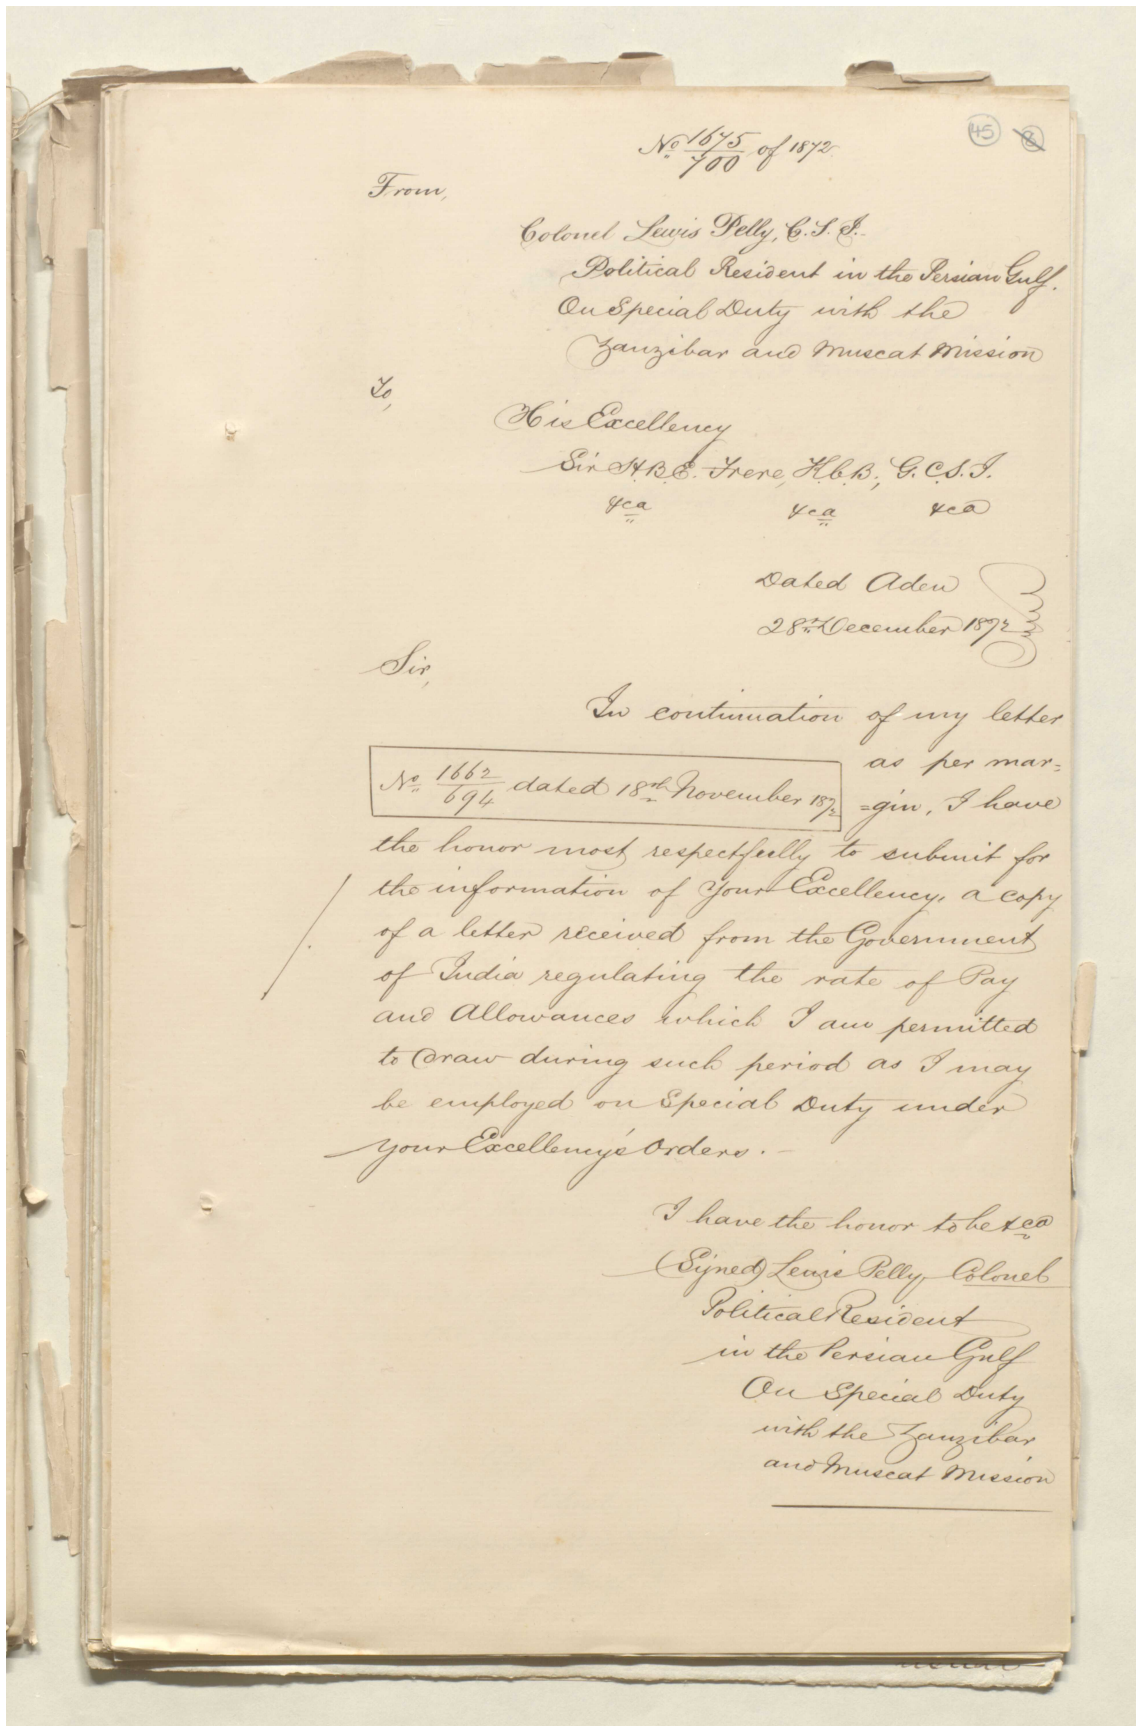 45 8
No 1675/700 of 1872
From,
Colonel Lewis Pelly, C.S.I.
Political Resident in the Persian Gulf.
On Special Duty with the
Zanzibar and Muscat Mission
To,
His Excellency
Sir H.B.E. Frere, K.C.B., G.C.S.I.
&ca &ca &ca
Dated Aden
28th December 1872
Sir,
In continuation of my letter
as per mar=
No 1662/694 dated 18th November 1872
=gin, I have
the honor most respectfully to submit for
the information of Your Excellency, a copy
of a letter received from the Government
of India regulating the rate of Pay
and Allowances which I am permitted
to draw during such period as I may
be employed on Special Duty under
your Excellency's Orders. -
I have the honor to be &ca
(Signed) Lewis Pelly, Colonel
Political Resident
in the Persian Gulf
On Special Duty
with the Zanzibar
and Muscat Mission